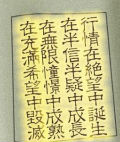 行情在絕望中誕生
在半信半疑中成長
在無限憧憬中成熟
在充滿希望中毀滅